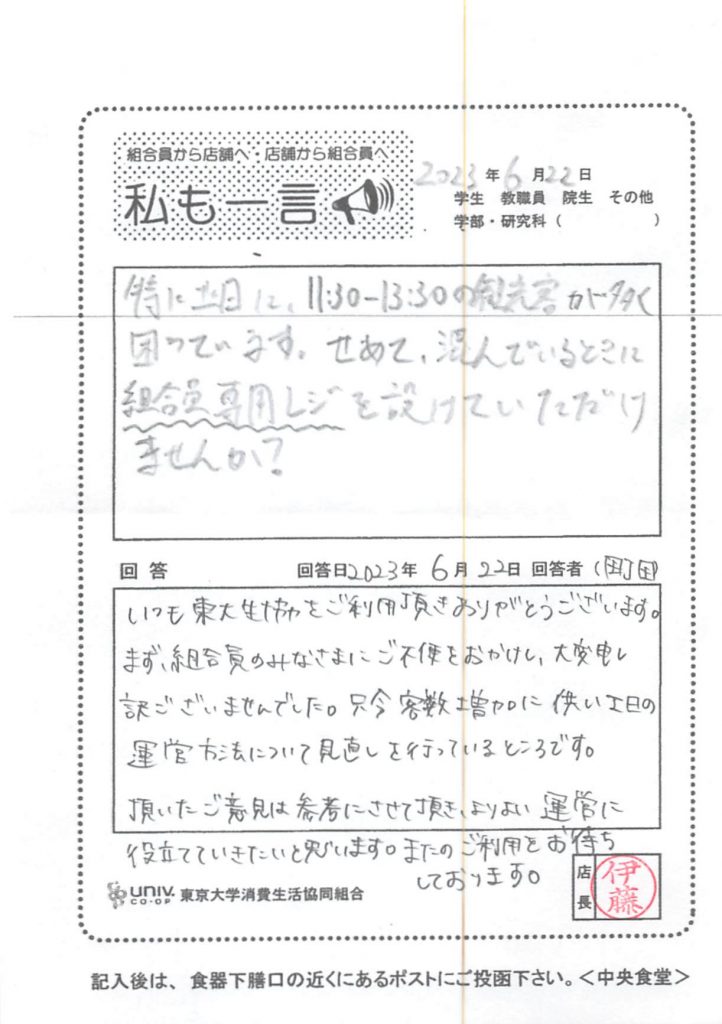 組合員から店舗へ・店舗から組合員へ
私も一言
2023年6月22日
学生 教職員 院生 その他
学部・研究科（ ）
特に土日に、11:30-13:30の観光客が多く
困っています。せめて、混んでいるときに
組合員専用レジを設けていただけ
ませんか？
回答 回答日2023年6月22日 回答者（町田）
いつも東大生協をご利用頂きありがとうございます。
まず、組合員のみなさまにご不便をおかけし、大変申し
訳ございませんでした。只今客数増加に伴い土日の
運営方法について見直しを行っているところです。
頂いたご意見は参考にさせて頂き、よりよい運営に
役立てていきたいと思います。またのご利用をお待ち
しております。
UNIV. CO-OP 東京大学消費生活協同組合
店長 伊藤
記入後は、食器下膳口の近くにあるポストにご投函下さい。＜中央食堂＞